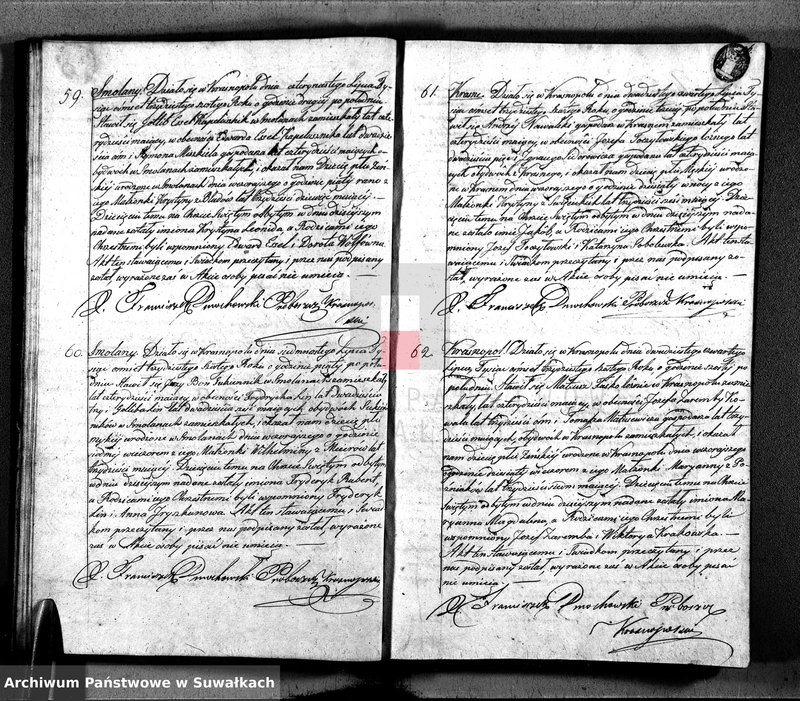 59. Smolany. Działo się w Krasnopolu dnia czternastego Lipca Ty-
siąc osmset trzydziestego szóstego Roku o godzinie drugiej po południu
Stawił się Golib Excel Kapelusznik w Smolanach zamieszkały lat czter-
dzieści mający, w obecności Edwarda Excel Kapelusznika lat dwadzie-
ścia ośm i Szymona gospodarza lat czterdzieści mających o-
bydwoch w Smolanach zamieszkałych, i okazał nam Dziecię płci żeń-
skiej urodzone w Smolanach dnia wczorayszego o godzinie piąty rano z jego
Małżonki Krystyny z lat trzydzieści dziewięć mającej.
Dziecięciu temu na Chrzcie Świętym odbytym w dniu dzisieyszym
nadane zostały imiona Krystyna Leonida, a Rodzicami jego
Chrzestnemi byli wspomniony Edward Excel i Dorota Wolfówna
Akt ten stawaiącemu i Świadkom przeczytany i przez nas podpisany
został, wyrażone zaś w Akcie osoby pisać nie umieią. —
X. Franciszek Dmochowski Proboszcz Krasnopol-
ski
60. Smolany. Działo się w Krasnopolu dnia siedmnastego Lipca Ty-
siąc osmset trzydziestego szóstego Roku o godzinie piąty po połu-
dniu Stawił się w Smolanach zamieszkały
lat czterdzieści mający, w obecności Fryderyka Lin lat dwadzieścia
i Goliba Lin lat dwadzieścia mających, obydwoch
w Smolanach zamieszkałych, i okazał nam dziecię płci
męzkiej urodzone w Smolanach dnia wczorayszego o godzinie
siodmy wieczorem z jego Małżonki Wilhelminy z lat
trzydzieści mającej. Dziecięciu temu na Chrzcie Świętym odbytym
w dniu dzisieyszym nadane zostały imiona Fryderyk Rubert,
a Rodzicami jego Chrzestnemi byli wspomniony Fryderyk
Lin i Anna. Akt ten stawaiącemu i Świad-
kom przeczytany i przez nas podpisany został, wyrażone
zaś w Akcie osoby pisać nie umieią —
X. Franciszek Dmochowski Proboszcz Krasnopolski
61. Krasne. Działo się w Krasnopolu dnia dwudziestego czwartego Lipca Ty-
siąc osmset trzydziestego szóstego Roku o godzinie trzeciej po południu Sta-
wił się Andrzej Nawalski gospodarz w Krasnem zamieszkały lat
czterdzieści mający, w obecności Jozefa Toczyłowskiego liczącego lat
dwadzieścia pięć i Ignacego Sidorowicza gospodarza lat czterdzieści mają-
cych obydwoch z Krasnego, i okazał nam dziecię płci męzkiej urodzo-
ne w Krasnem dnia wczorayszego o godzinie dziesiąty w nocy z jego
Małżonki Krystyny z lat trzydzieści sześć mającej. Dzie-
cięciu temu na Chrzcie Świętym odbytym w dniu dzisieyszym nada-
ne zostało imie Jakub, a Rodzicami jego Chrzestnemi byli wspo-
mniony Jozef Toczyłowski i Katarzyna Sobolewska. Akt ten sta-
waiącemu i Świadkom przeczytany i przez nas podpisany zo-
stał, wyrażone zaś w Akcie osoby pisać nie umieią. —
X. Franciszek Dmochowski Proboszcz Krasnopolski
62. Krasnopol. Działo się w Krasnopolu dnia dwudziestego czwartego
Lipca, Tysiąc osmset trzydziestego szóstego Roku o godzinie szosty po
południu. Stawił się Mateusz w Krasnopolu zamie-
szkały lat czterdzieści mający, w obecności Jozefa Zaremby Ko-
wala lat trzydzieści ośm i Tomasza Matusewicza gospodarza lat trzy-
dzieści mających, obydwoch w Krasnopolu zamieszkałych, i okazał
nam dziecię płci żeńskiej urodzone w Krasnopolu dnia wczorayszego
o godzinie dziesiąty wieczorem z jego Małżonki Maryanny z
lat trzydzieści siedm mającej. Dziecięciu temu na Chrzcie
Świętym odbytym w dniu dzisieyszym nadane zostały imiona Ma-
ryanna Magdalena, a Rodzicami jego Chrzestnemi byli
wspomniony Jozef Zaremba i Wiktorya Krakowska. —
Akt ten stawaiącemu i Świadkom przeczytany i przez
nas podpisany został, wyrażone zaś w Akcie osoby pisać
nie umieią —
X. Franciszek Dmochowski Proboszcz
Krasnopolski
Archiwum Państwowe w Suwałkach